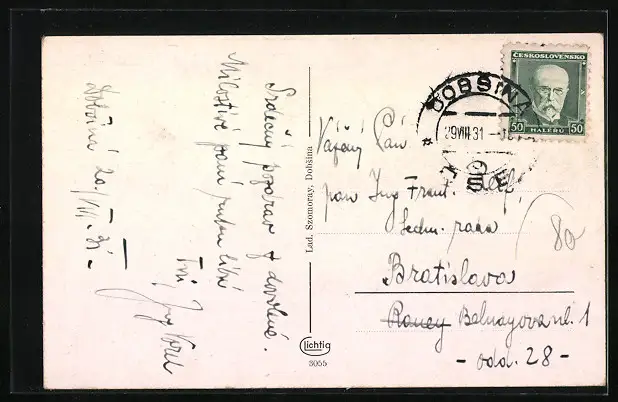 Dobšiná 29/VIII.31.
Srdečný pozdrav z dovolené.
Milostivé paní ruku líbá
Tvůj Ing
Lad. Szomoray, Dobšina
Lichtig
3055
ČESKOSLOVENSKO
50 HALÉŘŮ 50
DOBŠINÁ
29 VIII 31
Vážený Pán
pan Ing Frant.
techn. rada
Bratislava
Raney Belnayova ul. 1
- odd. 28 -
80